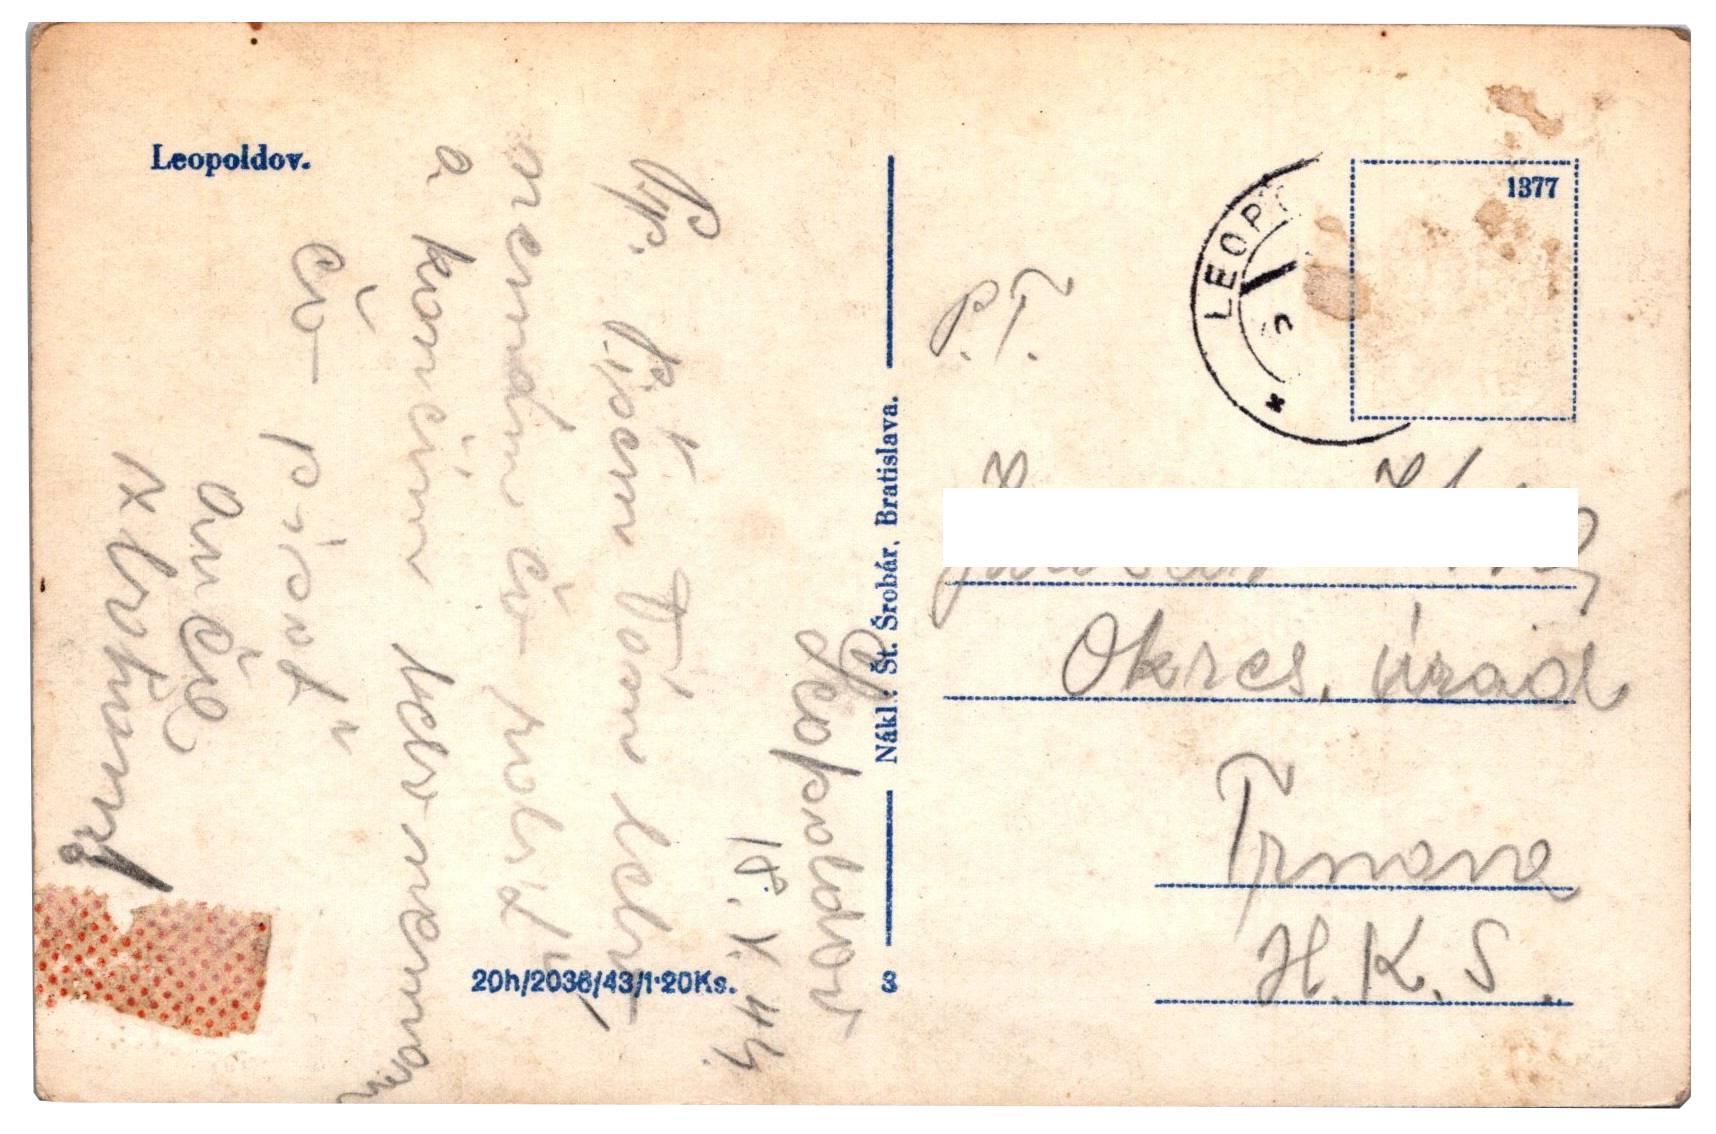 Leopoldov.
Leopoldov
18. V. 44.
Píšem Vám lebo
nemám čo robiť
a končím lebo nemám
čo písať
Nákl.: Št. Šrobár, Bratislava.
20h/2036/43/1·20Ks.
3
1377
LEOP
P.T.
Okres. úrad
Trnava
H.K.S.